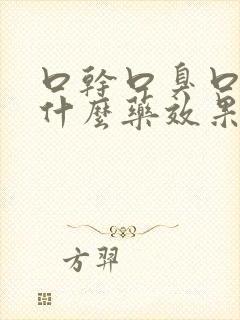 口幹口臭口
什麼藥效果
方羿